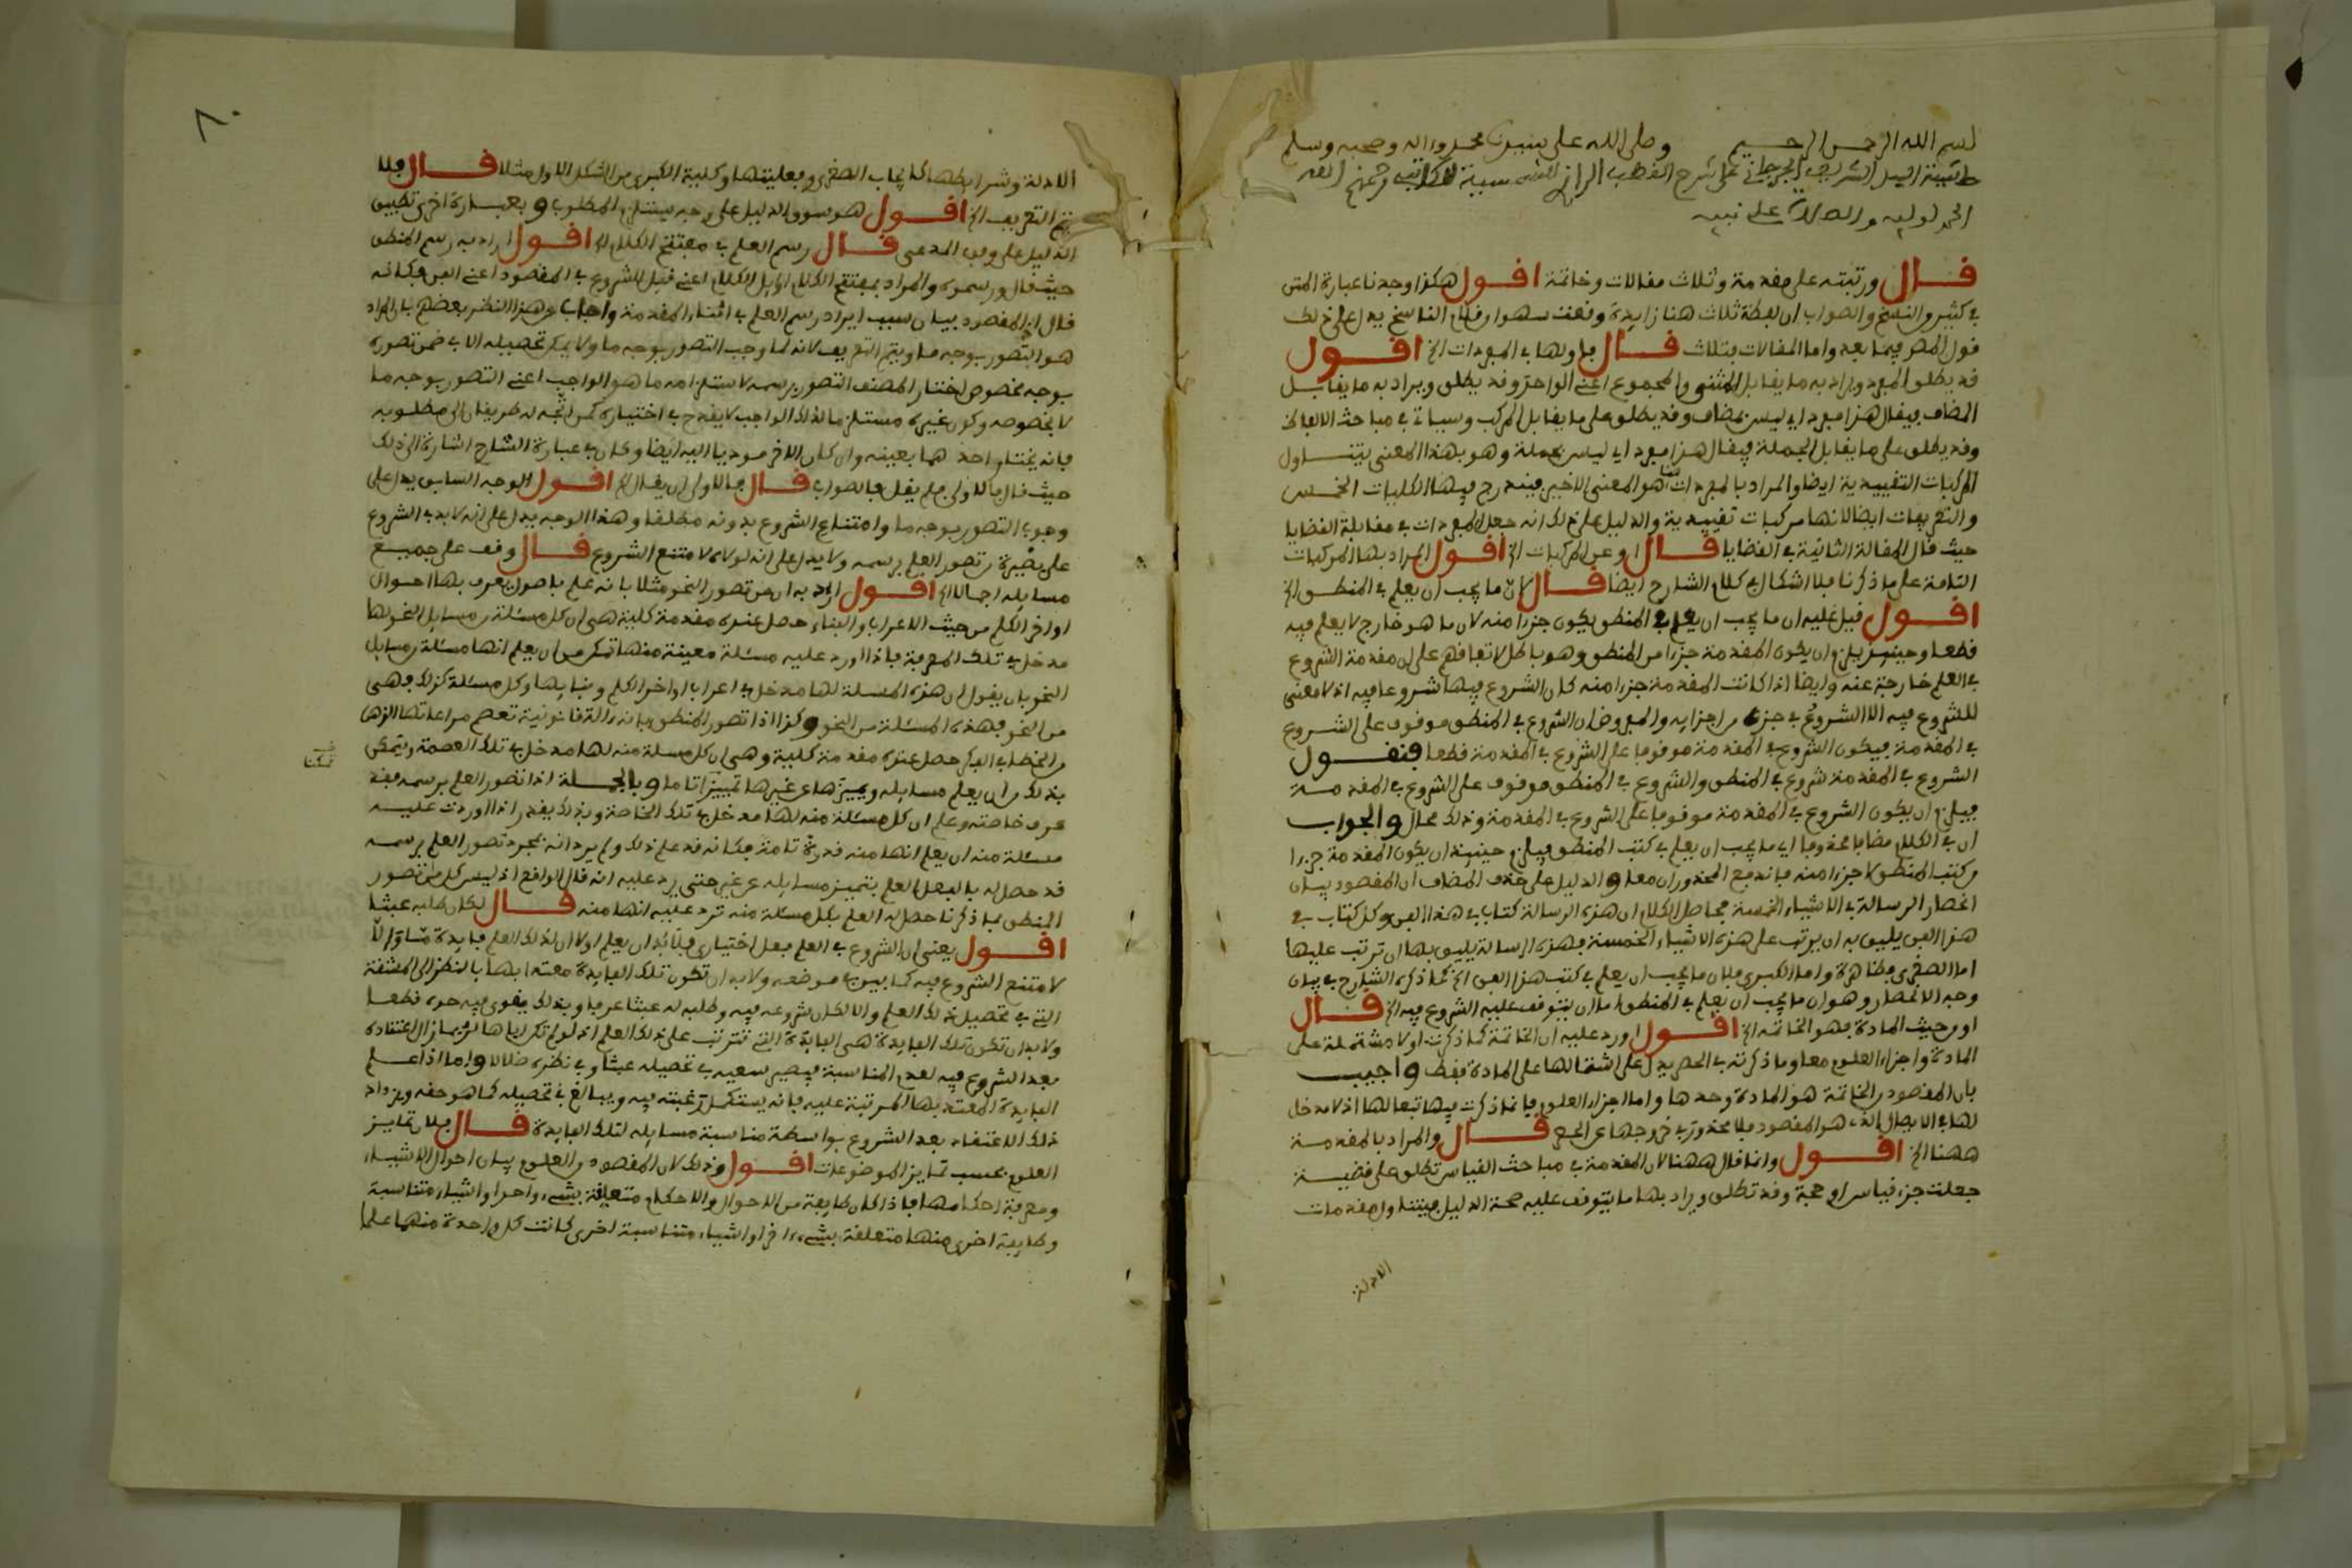 بسم الله الرحمن الرحيم وصلى الله على نبينا محمد واله وصحبه وسلم
حاشية السيد الشريف الجرجاني على شرح القطب الرازي للشمسية للكاتبي رحمهم الله
الحمد لوليه والصلاة على نبيه
قال ورتبته على مقدمة وثلاث مقالات وخاتمة اقول هكذا وجدنا عبارة المتن
في كثير من النسخ والصواب ان لفظة ثلاث هنا زايدة وقعت سهوا من قلم الناسخ يدل على ذلك
قول المص فيما بعد واما المقالات فثلاث قال فاولها في المفردات الخ اقول
قد يطلق المفرد ويراد به ما يقابل المثنى والمجموع اعني الواحد وقد يطلق ويراد به ما يقابل
المضاف فيقال هذا مفرد اي ليس بمضاف وقد يطلق على ما يقابل المركب وسياتي في مباحث الالفاظ
وقد يطلق على ما يقابل الجملة فيقال هذا مفرد اي ليس بجملة وهو بهذا المعنى يتناول
المركبات التقييدية ايضا والمراد بالمفردات هنا هو المعنى الاخير فيندرج فيها الكليات الخمس
والتعريفات ايضا لانها مركبات تقييدية والدليل على ذلك انه جعل المفردات في مقابلة القضايا
حيث قال المقالة الثانية في القضايا قال او عن المركبات الخ اقول المراد بها المركبات
التامة على ما ذكرنا فلا اشكال في كلام الشارح ايضا قال لان ما يجب ان يعلم في المنطق الخ
اقول قيل عليه ان ما يجب ان يعلم في المنطق يكون جزءا منه لان ما هو خارج لا يعلم فيه
قطعا وحينيذ يلزم ان يكون المقدمة جزءا من المنطق وهو باطل لاتفاقهم على ان مقدمة الشروع
في العلم خارجة عنه وايضا اذا كانت المقدمة جزءا منه كان الشروع فيها شروعا فيه اذ لا معنى
للشروع فيه الا الشروع في جزء من اجزايه والمفروض ان الشروع في المنطق موقوف على الشروع
في المقدمة فيكون الشروع في المقدمة موقوفا على الشروع في المقدمة قطعا فنقول
الشروع في المقدمة شروع في المنطق والشروع في المنطق موقوف على الشروع في المقدمة
فيلزم ان يكون الشروع في المقدمة موقوفا على الشروع في المقدمة وذلك محال والجواب
ان في الكلام مضافا محذوفا اي ما يجب ان يعلم في كتب المنطق فيلزم حينيذ ان يكون المقدمة جزءا
من كتب المنطق لا جزءا منه فاندفع المحذوران معا والدليل على حذف المضاف ان المقصود بيان
انحصار الرسالة في الاشياء الخمسة فحاصل الكلام ان هذه الرسالة كتاب في هذا الفن وكل كتاب في
هذا الفن يليق به ان يرتب على هذه الاشياء الخمسة فهذه الرسالة يليق بها ان ترتب عليها
اما الصغرى فظاهرة واما الكبرى فلان ما يجب ان يعلم في كتب هذا الفن الخ كما ذكره الشارح في بيان
وجه الانحصار وهو ان ما يجب ان يعلم في المنطق اما ان يتوقف عليه الشروع فيه الخ قال
او من حيث المادة فهو الخاتمة الخ اقول اورد عليه ان الخاتمة كما ذكرت اولا مشتملة على
المادة واجزاء العلوم معا وما ذكرته في الحصر يدل على اشتمالها على المادة فقط واجيب
بان المقصود من الخاتمة هو المادة وحدها واما اجزاء العلوم فانما ذكرت فيها تبعا لها اذ لا مدخل
لها في الايصال الذي هو المقصود فلا محذور في خروجها عن الحصر قال والمراد بالمقدمة
ههنا الخ اقول وانما قال ههنا لان المقدمة في مباحث القياس تطلق على قضية
جعلت جزء قياس او حجة وقد تطلق ويراد بها ما يتوقف عليه صحة الدليل فيتناول مقدمات
الادلة
٨٠
الادلة وشرايطها كايجاب الصغرى وفعليتها وكلية الكبرى من الشكل الاول مثلا قال فلا
يتم التقريب الخ اقول هو سوق الدليل على وجه يستلزم المطلوب وبعبارة اخرى تطبيق
الدليل على وفق المدعى قال رسم العلم في مفتتح الكلام الخ اقول اراد به رسم المنطق
حيث قال ورسموه والمراد بمفتتح الكلام اوايل الكلام اعني قبل الشروع في المقصود اعني الفن فكانه
قال ان المقصود بيان سبب ايراد رسم العلم في اثناء المقدمة واجاب عن هذا النظر بعضهم بان المراد
هو التصور بوجه ما ويتم التقريب لانه لما وجب التصور بوجه ما ولا يمكن تحصيله الا في ضمن تصوره
بوجه مخصوص اختار المصنف التصور برسمه لاستلزامه ما هو الواجب اعني التصور بوجه ما
لا بخصوصه وكون غيره مستلزما لذلك الواجب لا يقدح في اختياره كمن اتجه له طريقان الى مطلوبه
فانه يختار احدهما بعينه وان كان الاخر موديا اليه ايضا وكان في عبارة الشارح اشارة الى ذلك
حيث قال فالاولى ولم يقل فالصواب قال فالاولى ان يقال الخ اقول الوجه السابق يدل على
وجوب التصور بوجه ما وامتناع الشروع بدونه مطلقا وهذا الوجه يدل على انه لا بد في الشروع
على بصيرة من تصور العلم برسمه ولا يدل على انه لولاه لامتنع الشروع قال وقف على جميع
مسايله اجمالا الخ اقول اراد به ان من تصور النحو مثلا بانه علم باصول يعرف بها احوال
اواخر الكلم من حيث الاعراب والبناء حصل عنده مقدمة كلية هي ان كل مسئلة من مسايل النحو لها
مدخل في تلك المعرفة فاذا اورد عليه مسئلة معينة منها تمكن من ان يعلم انها مسئلة من مسايل
النحو بان يقول ان هذه المسئلة لها مدخل في اعراب اواخر الكلم وبنايها وكل مسئلة كذلك فهي
من النحو فهذه المسئلة من النحو وكذا اذا تصور المنطق بانه الة قانونية تعصم مراعاتها الذهن
من الخطا في الفكر حصل عنده مقدمة كلية وهي ان كل مسئلة منه لها مدخل في تلك العصمة ويتمكن
بذلك من ان يعلم مسايله ويميزها عن غيرها تمييزا تاما وبالجملة اذا تصور العلم برسمه فقد
عرف خاصته وعلم ان كل مسئلة منه لها مدخل في تلك الخاصة وبذلك يقدر اذا اوردت عليه
مسئلة منه ان يعلم انها منه قدرة تامة فكانه قد علم ذلك ولم يرد انه بمجرد تصور العلم برسمه
قد حصل له بالفعل العلم بتمييز مسايله عن غير حتى يرد عليه انه قال الواقع اذ ليس كل من تصور
المنطق بما ذكرنا حصل له العلم بكل مسئلة منه ترد عليه انها منه قال لكان طلبه عبثا
اقول يعني ان الشروع في العلم فعل اختياري فلا بد ان يعلم اولا ان لذلك العلم فايدة ما والا
لامتنع الشروع فيه كما بين في موضعه ولا بد ان تكون تلك الفايدة معتدا بها بالنظر الى المشقة
التي في تحصيل ذلك العلم والا لكان شروعه فيه وطلبه له عبثا عرفا وبذلك يقوى فيه جده قطعا
ولا بد ان تكون تلك الفايدة هي الفايدة التي تترتب على ذلك العلم اذ لو لم تكن اياها لربما زال اعتقاده
بعد الشروع فيه لعدم المناسبة فيصير سعيه في تحصيله عبثا وفي نظره ضلالا واما اذا علم
الفايدة المعتد بها المرتبة عليه فانه يستكمل رغبته فيه ويبالغ في تحصيله كما هو حقه ويزداد
ذلك الاعتقاد بعد الشروع بواسطة مناسبة مسايله لتلك الفايدة قال فلان تمايز
العلوم بحسب تمايز الموضوعات اقول وذلك لان المقصود من العلوم بيان احوال الاشياء
ومعرفة احكامها فاذا كان طايفة من الاحوال والاحكام متعلقة بشيء واحد او اشياء متناسبة
وطايفة اخرى منها متعلقة بشيء اخر او اشياء متناسبة اخرى كانت كل واحدة منهما علما